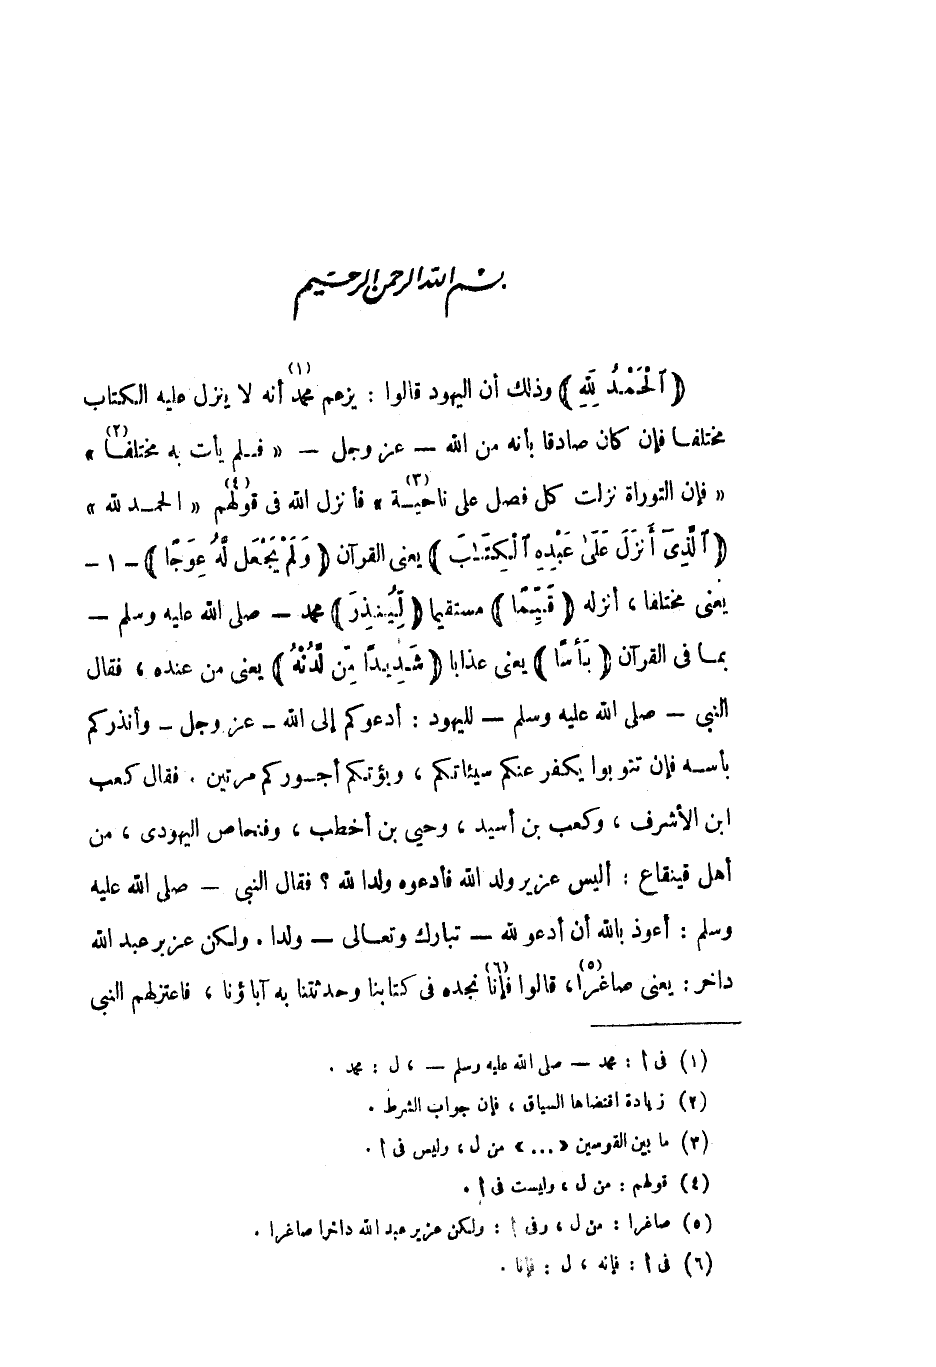 بسم الله الرحمن الرحيم
﴿ ٱلْحَمْدُ لِلَّهِ ﴾ وذلك أن اليهود قالوا : يزعم محمد(١) أنه لا ينزل عليه الكتاب
مختلفا فإن كان صادقا بأنه من الله — عز وجل — « فلم يأت به مختلفا(٢) »
« فإن التوراة نزلت كل فصل على ناحية(٣) » فأنزل الله فى قولهم(٤) « الحمد لله »
﴿ ٱلَّذِىٓ أَنزَلَ عَلَىٰ عَبْدِهِ ٱلْكِتَٰبَ ﴾ يعنى القرآن ﴿ وَلَمْ يَجْعَل لَّهُ عِوَجًا ﴾ - ١ -
يعنى مختلفا ، أنزله ﴿ قَيِّمًا ﴾ مستقيما ﴿ لِّيُنذِرَ ﴾ محمد — صلى الله عليه وسلم —
بما فى القرآن ﴿ بَأْسًا ﴾ يعنى عذابا ﴿ شَدِيدًا مِّن لَّدُنْهُ ﴾ يعنى من عنده ، فقال
النبي — صلى الله عليه وسلم — لليهود : أدعوكم إلى الله - عز وجل - وأنذركم
بأسه فإن تتوبوا يكفر عنكم سيئاتكم ، ويؤتكم أجوركم مرتين . فقال كعب
ابن الأشرف ، وكعب بن أسيد ، وحيي بن أخطب ، وفنحاص اليهودى ، من
أهل قينقاع : أليس عزير ولد الله فأدعوه ولدا لله ؟ فقال النبي — صلى الله عليه
وسلم : أعوذ بالله أن أدعو لله — تبارك وتعالى — ولدا . ولكن عزير عبد الله
داخر : يعنى صاغرا(٥)، قالوا فإنا(٦) نجده فى كتابنا وحدثتنا به آباؤنا ، فاعتزلهم النبي
(١) فى أ : محمد — صلى الله عليه وسلم — ، ل : محمد .
(٢) زيادة اقتضاها السياق ، فإن جواب الشرط .
(٣) ما بين القوسين « ... » من ل ، وليس فى أ .
(٤) قولهم : من ل ، وليست فى أ .
(٥) صاغرا : من ل ، وفى أ : ولكن عزير عبد الله داخرا صاغرا .
(٦) فى أ : فإنه ، ل : فإنا .